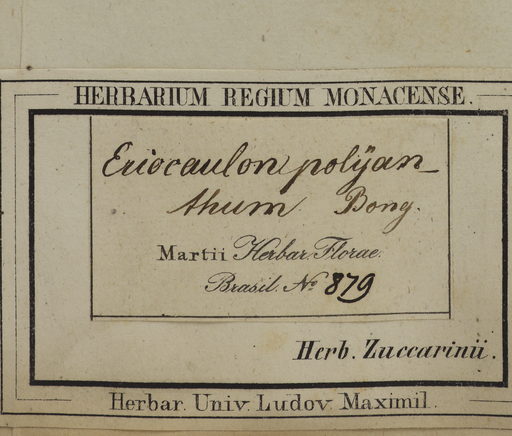 HERBARIUM REGIUM MONACENSE.
Eriocaulon polÿan
thum Bong.
Martii Herbar. Florae.
Brasil. No 879
Herb. Zuccarinii.
Herbar. Univ. Ludov. Maximil.